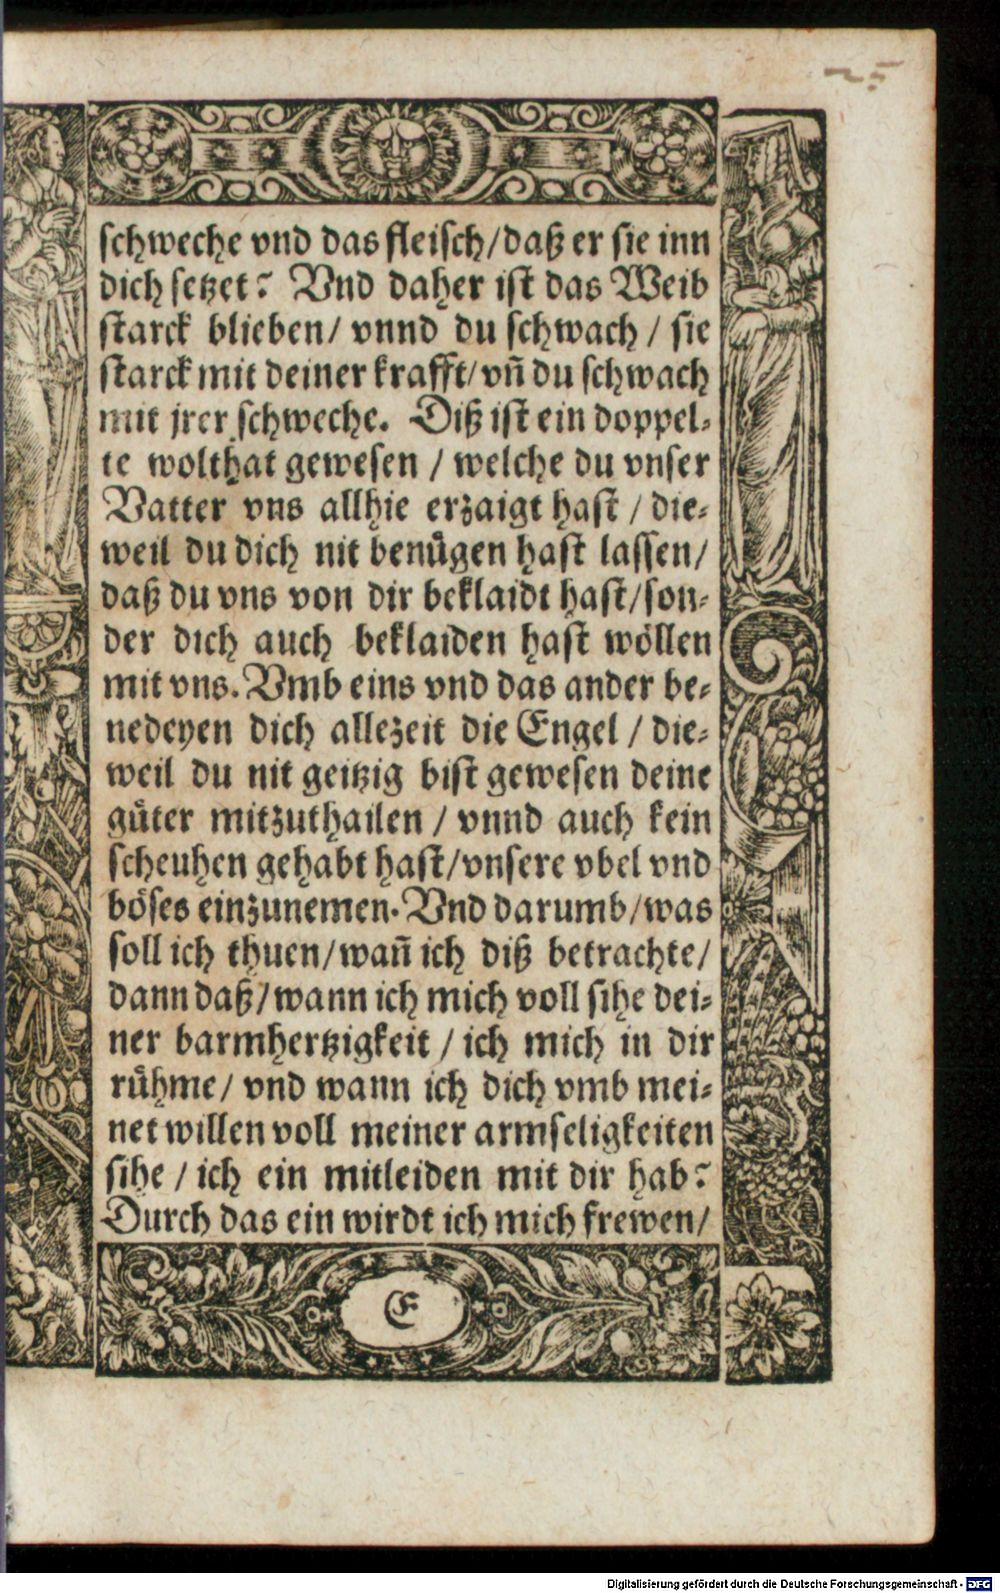 25
schweche vnd das fleisch/daß er sie inn
dich setzet? Vnd daher ist das Weib
starck blieben/ vnnd du schwach / sie
starck mit deiner krafft/vñ du schwach
mit jrer schweche. Diß ist ein doppel⸗
te wolthat gewesen / welche du vnser
Vatter vns allhie erzaigt hast / die⸗
weil du dich nit benuͤgen hast lassen/
daß du vns von dir beklaidt hast/son⸗
der dich auch beklaiden hast woͤllen
mit vns. Vmb eins vnd das ander be⸗
nedeyen dich allezeit die Engel / die⸗
weil du nit geitzig bist gewesen deine
guͤter mitzuthailen / vnnd auch kein
scheuhen gehabt hast/vnsere vbel vnd
boͤses einzunemen. Vnd darumb/was
soll ich thuen/wañ ich diß betrachte/
dann daß/wann ich mich voll sihe dei⸗
ner barmhertzigkeit / ich mich in dir
ruͤhme/ vnd wann ich dich vmb mei⸗
net willen voll meiner armseligkeiten
sihe / ich ein mitleiden mit dir hab?
Durch das ein wirdt ich mich frewen/
E
Digitalisierung gefördert durch die Deutsche Forschungsgemeinschaft - DFG